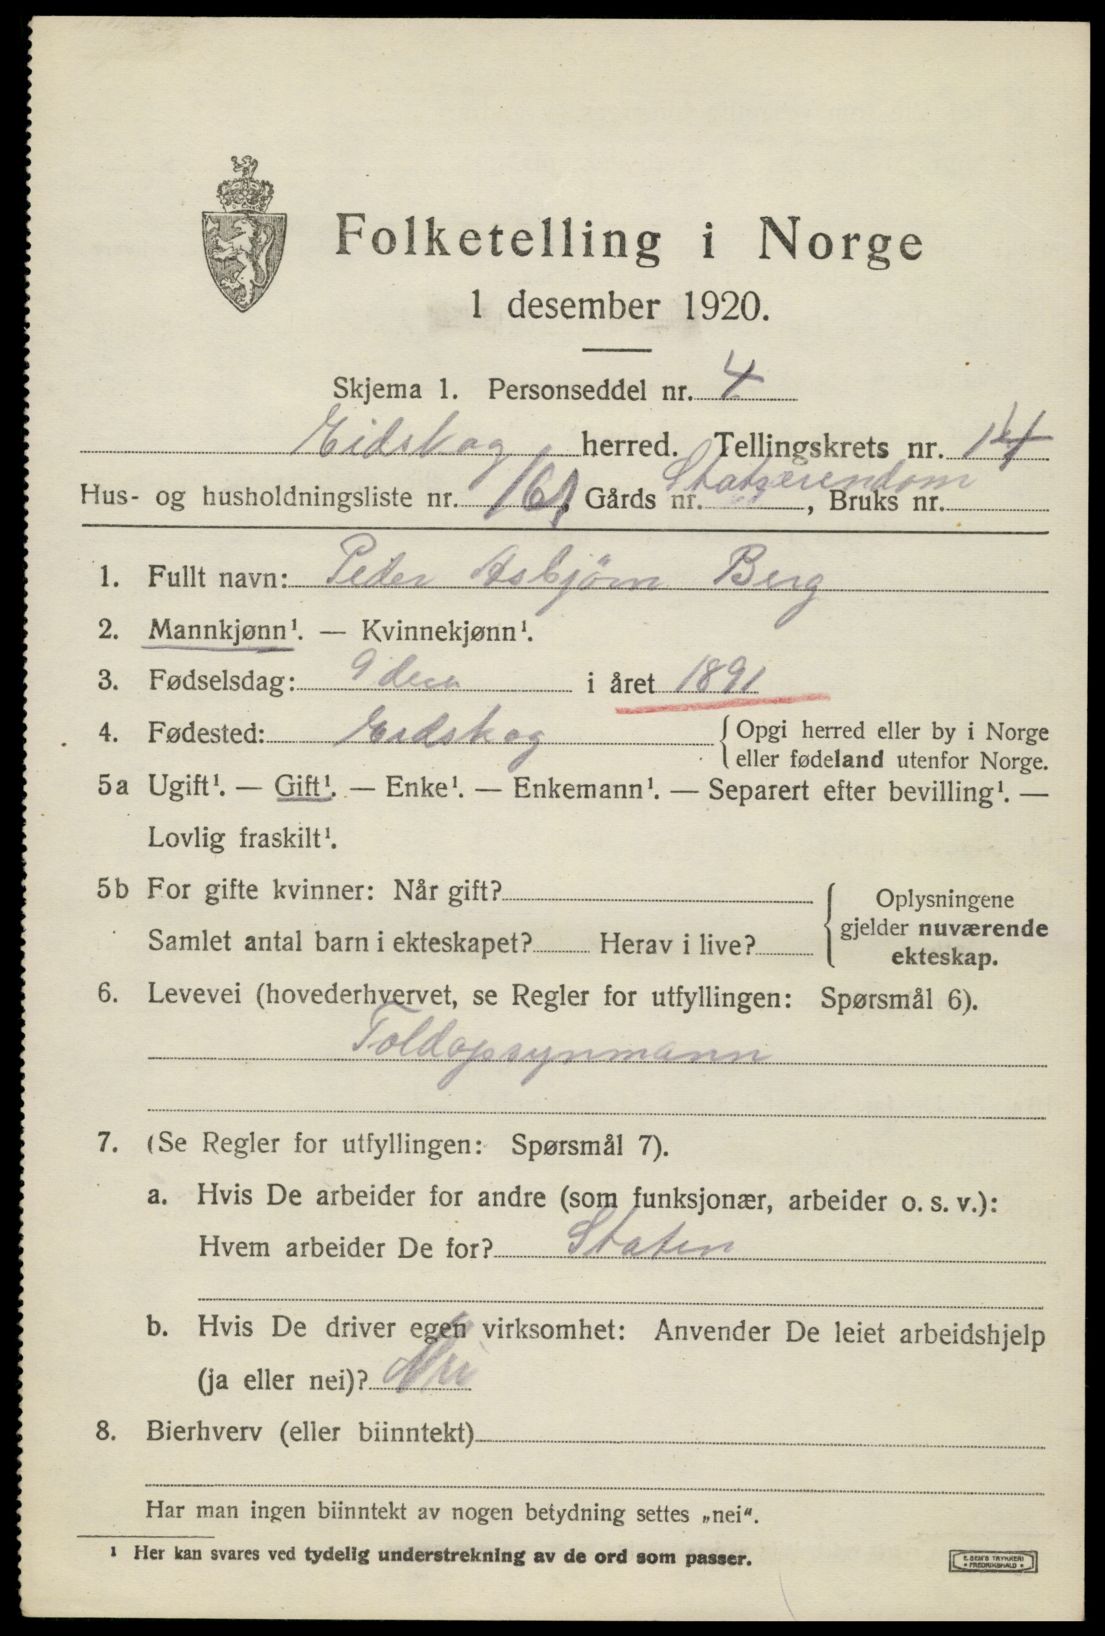 Folketelling i Norge
1 desember 1920.
Skjema 1. Personseddel nr. 4
Eidskog herred. Tellingskrets nr. 14
Hus- og husholdningsliste nr. 161, Gårds nr. Statseiendom, Bruks nr.
1. Fullt navn: Peder Asbjörn Berg
2. Mannkjønn¹. — Kvinnekjønn¹.
3. Fødselsdag: 9 des i året 1891
4. Fødested: Eidskog {Opgi herred eller by i Norge
eller fødeland utenfor Norge.
5a Ugift¹. — Gift¹. — Enke¹. — Enkemann¹. — Separert efter bevilling¹. —
Lovlig fraskilt¹.
5b For gifte kvinner: Når gift? { Oplysningene
gjelder nuværende
Samlet antal barn i ekteskapet? Herav i live? ekteskap.
6. Levevei (hovederhvervet, se Regler for utfyllingen: Spørsmål 6).
Toldopsynmann
7. (Se Regler for utfyllingen: Spørsmål 7).
a. Hvis De arbeider for andre (som funksjonær, arbeider o. s. v.):
Hvem arbeider De for? Staten
b. Hvis De driver egen virksomhet: Anvender De leiet arbeidshjelp
(ja eller nei)? Nei
8. Bierhverv (eller biinntekt)
Har man ingen biinntekt av nogen betydning settes „nei“.
¹ Her kan svares ved tydelig understrekning av de ord som passer.
E. SEM'S TRYKKERI
• FREDRIKSHALD •